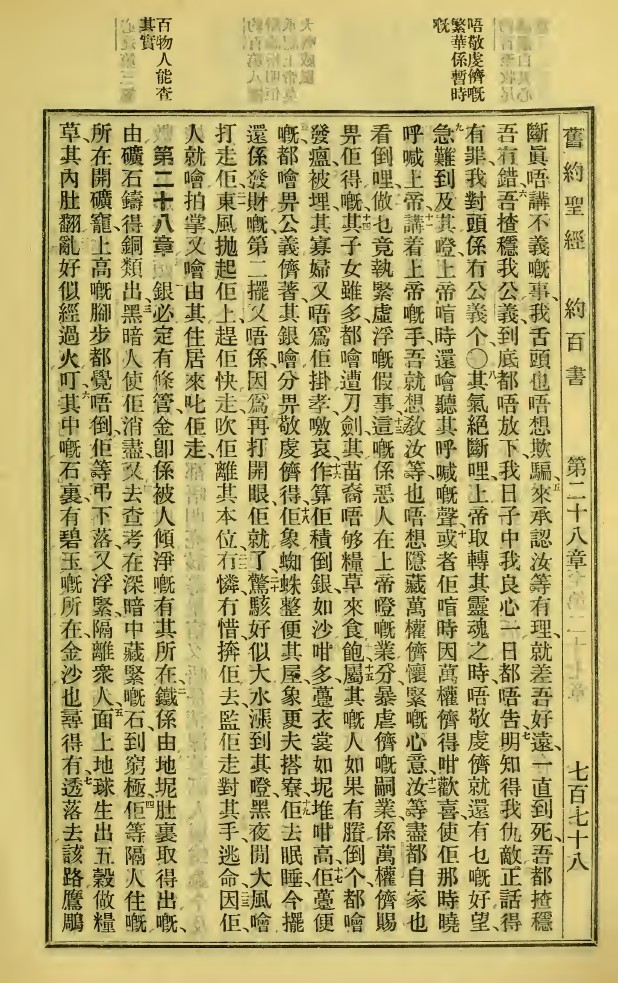 唔敬虔儕嘅
繁華係暫時
嘅
百物人能查
其實
舊約聖經 約百書 第二十八章 七百七十八
斷眞唔講不義嘅事我舌頭也唔想欺騙來承認汝等有理就差吾好遠一直到死吾都揸穩
吾冇錯吾揸穩我公義到底都唔放下我日子中我良心一日都唔告明知得我仇敵正話得
有罪我對頭係冇公義个〇其氣絕斷哩上帝取轉其靈魂之時唔敬虔儕就還有乜嘅好望
急難到及其嶝上帝喑時還噲聽其呼喊嘅聲或者佢喑時因萬權儕得咁歡喜使佢那時曉
呼喊上帝講着上帝嘅手吾就想敎汝等也唔想隱藏萬權儕懷緊嘅心意汝等盡都自家也
看倒哩做乜竟執緊虛浮嘅假事這嘅係惡人在上帝嶝嘅業分暴虐儕嘅嗣業係萬權儕賜
畀佢得嘅其子女雖多都噲遭刀劍其苗裔唔够糧草來食飽屬其嘅人如果有賸倒个都噲
發瘟被埋其寡婦又唔爲佢掛孝噭哀作算佢積倒銀如沙咁多躉衣裳如坭堆咁高佢躉便
嘅都噲畀公義儕著其銀噲分畀敬虔儕得佢象蜘蛛整便其屋象更夫搭寮佢去眠睡今擺
還係發財嘅第二擺又唔係因爲再打開眼佢就了驚駭好似大水漲到其嶝黑夜閒大風噲
打走佢東風拋起佢上趕佢快走吹佢離其本位冇憐冇惜捹佢去監佢走對其手逃命因佢
人就噲拍掌又噲由其住居來叱佢走
第二十八章 銀必定有條管金卽係被人傾淨嘅有其所在鐵係由地坭肚裏取得出嘅
由礦石鑄得銅類出黑暗人使佢消盡又去查考在深暗中藏緊嘅石到窮極佢等隔人住嘅
所在開礦竉上高嘅腳步都覺唔倒佢等弔下落又浮緊隔離衆人面上地球生出五穀做糧
草其內肚翻亂好似經過火叮其中嘅石裏有碧玉嘅所在金沙也尋得有透落去該路鷹鵰